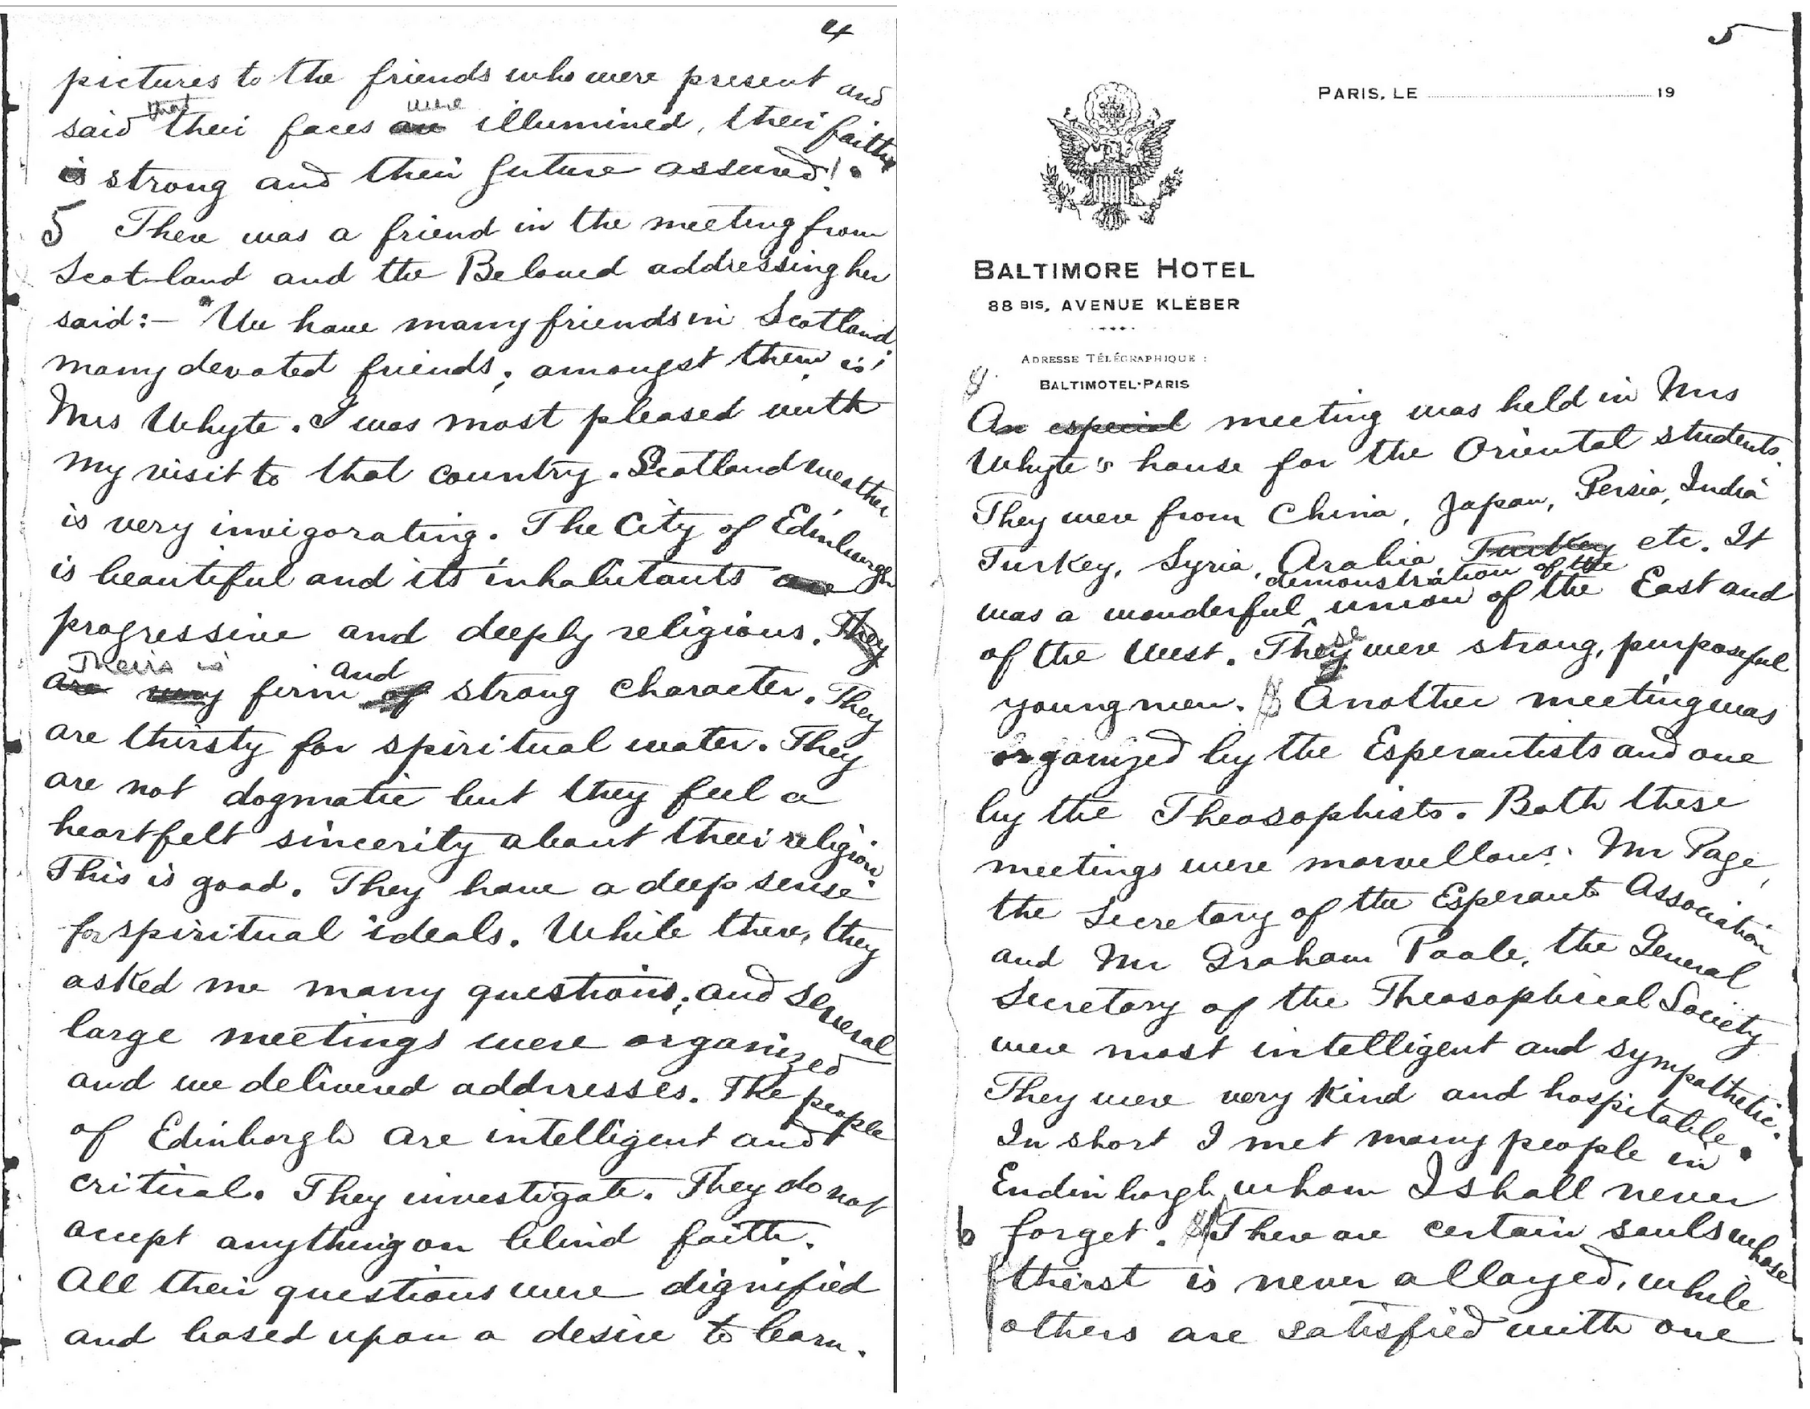 4
pictures to the friends who were present and
said that their faces are were illumined, their faith
is strong and their future assured!"
5 There was a friend in the meeting from
Scotland and the Beloved addressing her
said:– "We have many friends in Scotland
many devoted friends; amongst them is;
Mrs Whyte. I was most pleased with
my visit to that country. Scotland weather
is very invigorating. The City of Edinburgh
is beautiful and its inhabitants are
progressive and deeply religious. They
are very Theirs is firm and of strong character. They
are thirsty for spiritual water. They
are not dogmatic but they feel a
heartfelt sincerity about their religion.
This is good. They have a deep sense
for spiritual ideals. While there, they
asked me many questions; and several
large meetings were organized
and we delivered addresses. The people
of Edinborgh are intelligent and
critical. They investigate. They do not
accept anything on blind faith.
All their questions were dignified
and based upon a desire to learn.
5
PARIS, LE 19
BALTIMORE HOTEL
88 BIS, AVENUE KLÉBER
ADRESSE TÉLÉGRAPHIQUE :
BALTIMOTEL-PARIS
An especial meeting was held in Mrs
Whyte's house for the Oriental students.
They were from China, Japan, Persia, India
Turkey, Syria, Arabia, Turkey etc. It
was a wonderful demonstration of the union of the East and
of the West. These were strong, purposeful
young men. Another meeting was
organized by the Esperantists and one
by the Theosophists. Both these
meetings were marvellous. Mr Page,
the Secretary of the Esperanto Association
and Mr Graham Poole, the General
Secretary of the Theosophical Society
were most intelligent and sympathetic.
They were very kind and hospitable.
In short I met many people in
Endinborgh whom I shall never
6 forget. There are certain souls whose
thirst is never allayed, while
others are satisfied with one